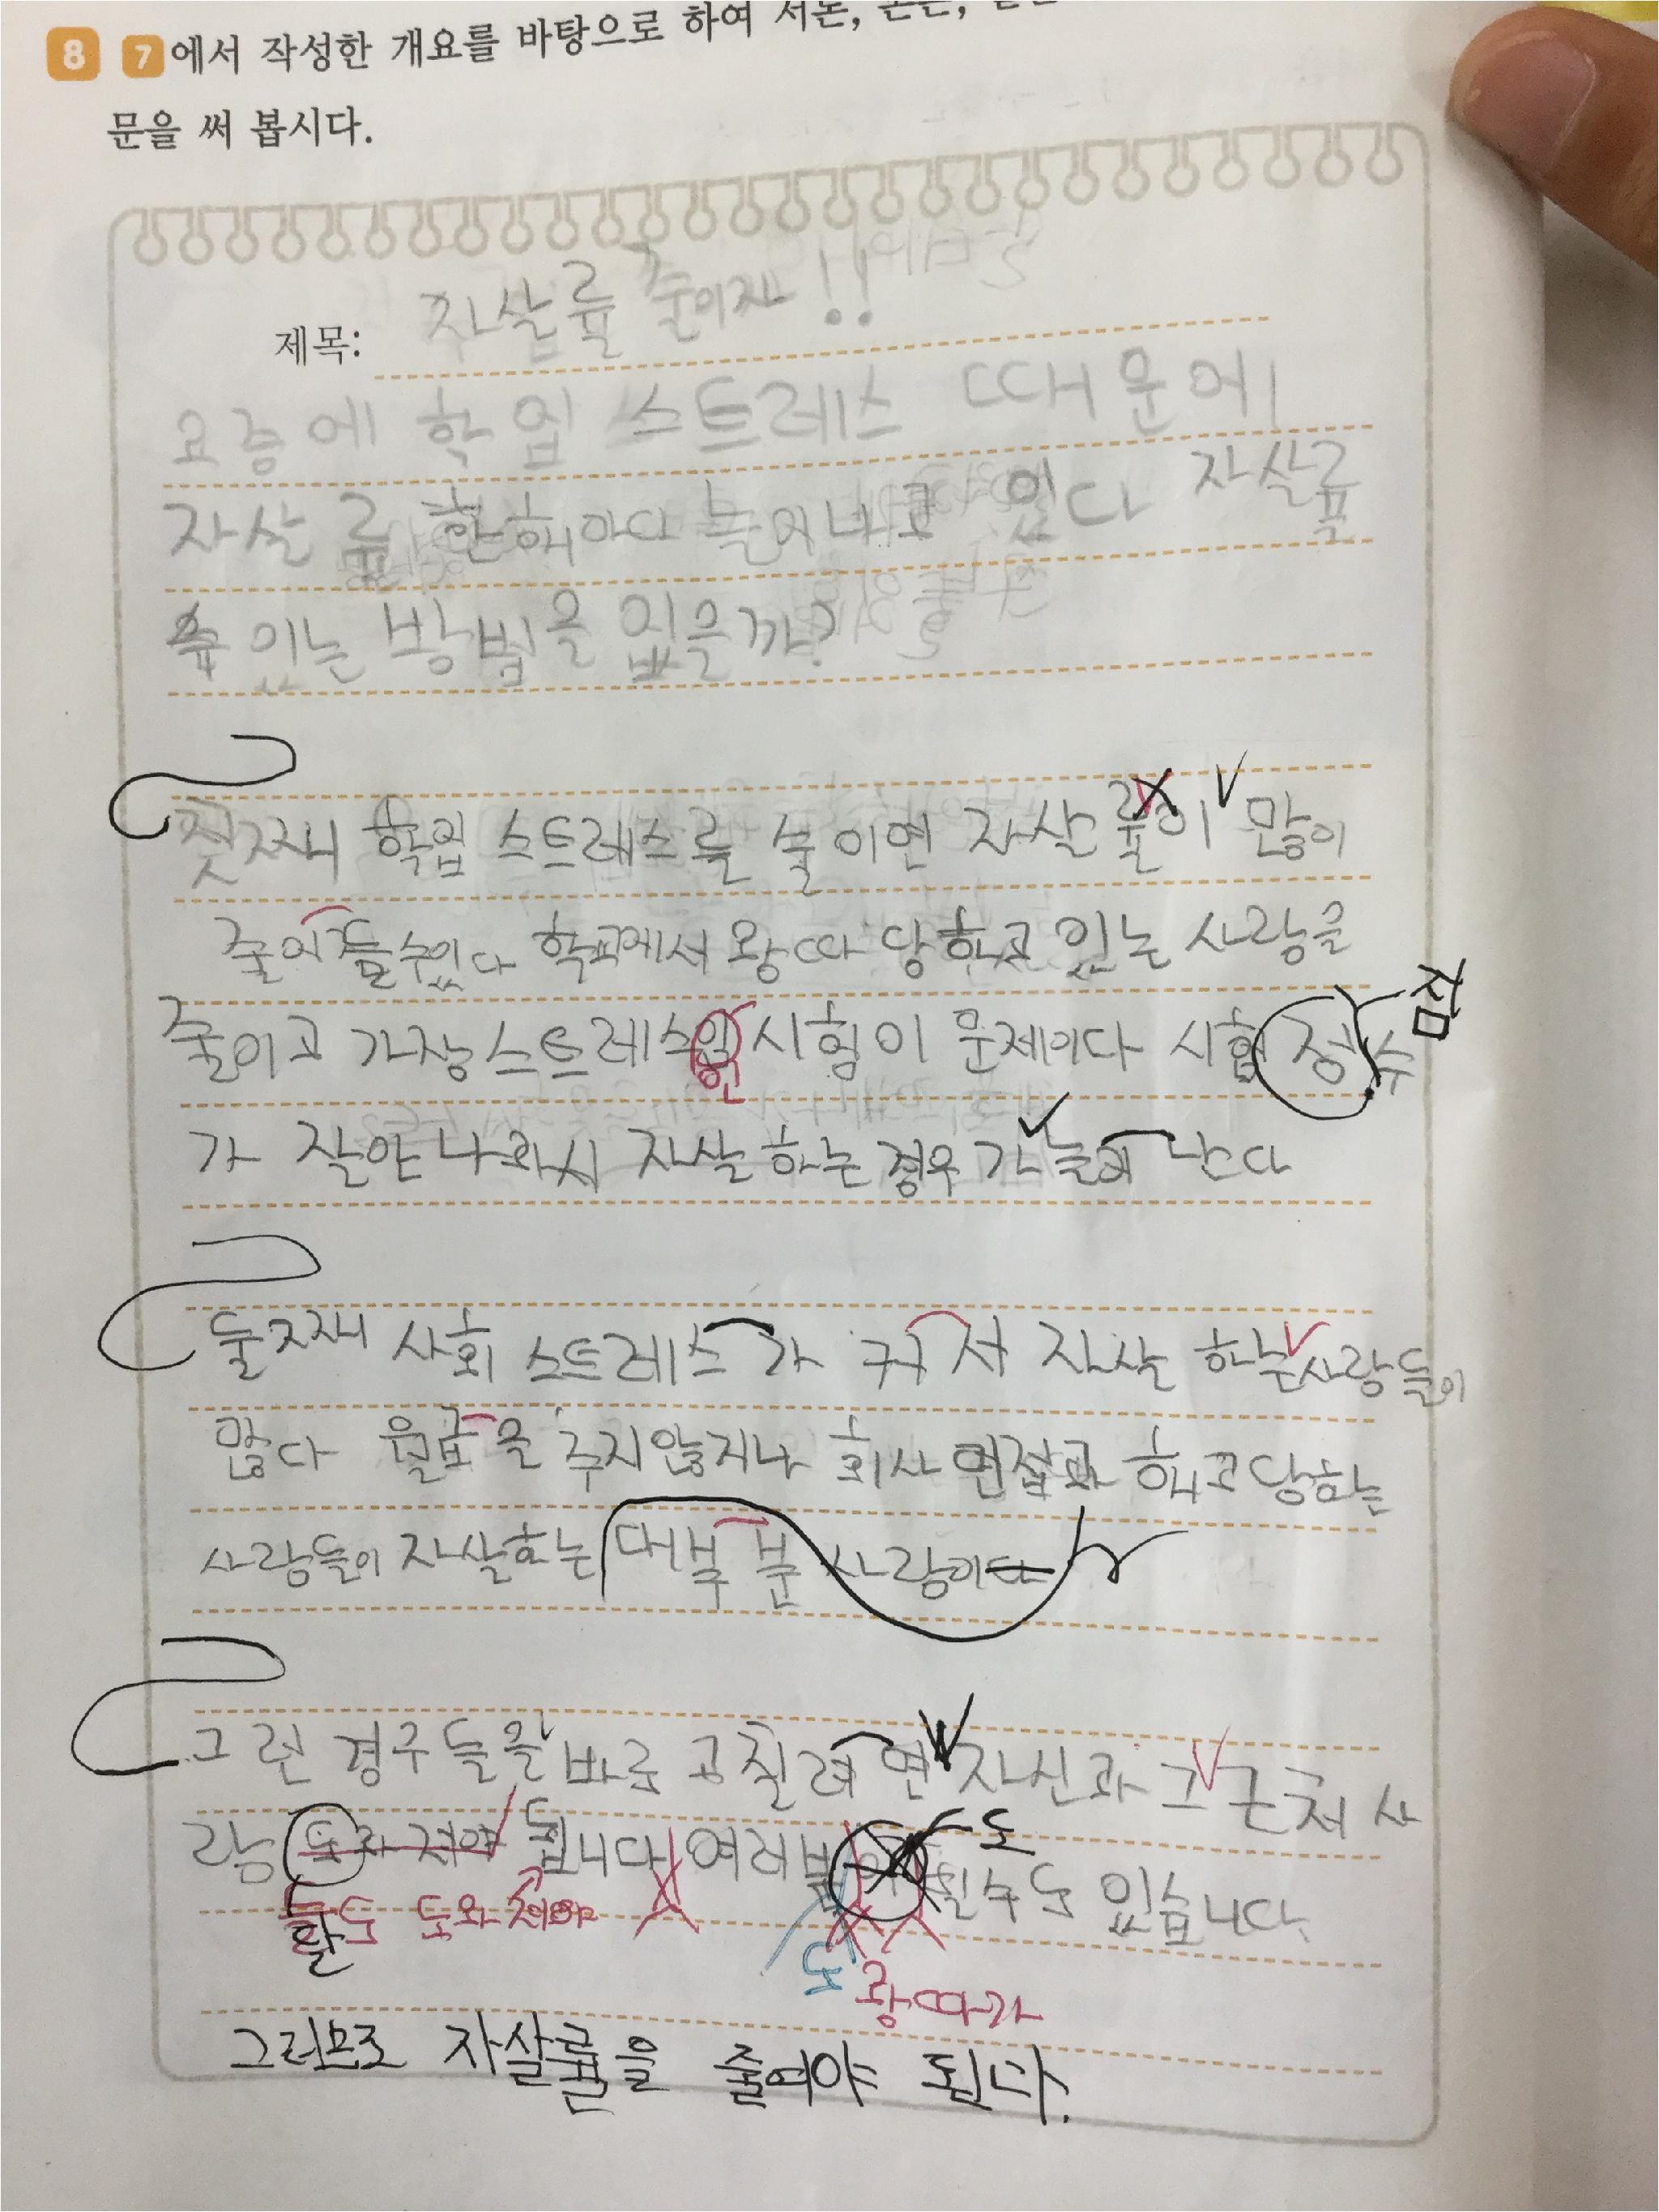 8 7에서 작성한 개요를 바탕으로 하여 서론, 본론,
문을 써 봅시다.
제목: 자살률 줄이자!!
요즘에 학업 스트레스 때문에
자살률 한해마다 늘어나고 있다 자살률
있는 방법을 없을까?
첫째 학업 스트레스를 줄이면 자살률이 많이
줄어 들수있다 학교에서 왕따 당하고 있는 사람을
줄이고 가장 스트레스인 시험이 문제이다 시험 정수
점
인
가 잘안 나와서 자살 하는 경우 가 늘어 난다
둘째 사회 스트레스 가 커 서 자살 하는 사람들이
많다 월급 을 주지않지나 회사 면접과 해고당하는
사람들이 자살하는 대부 분 사람이다
그런 경우들을 바로 고칠려 면 자신과 그 근처 사
람 도와 줘야 됩니다 여러분 될수도 있습니다.
도
람도 도와 줘야
도
왕따가
그러므로 자살률을 줄여야 된다.